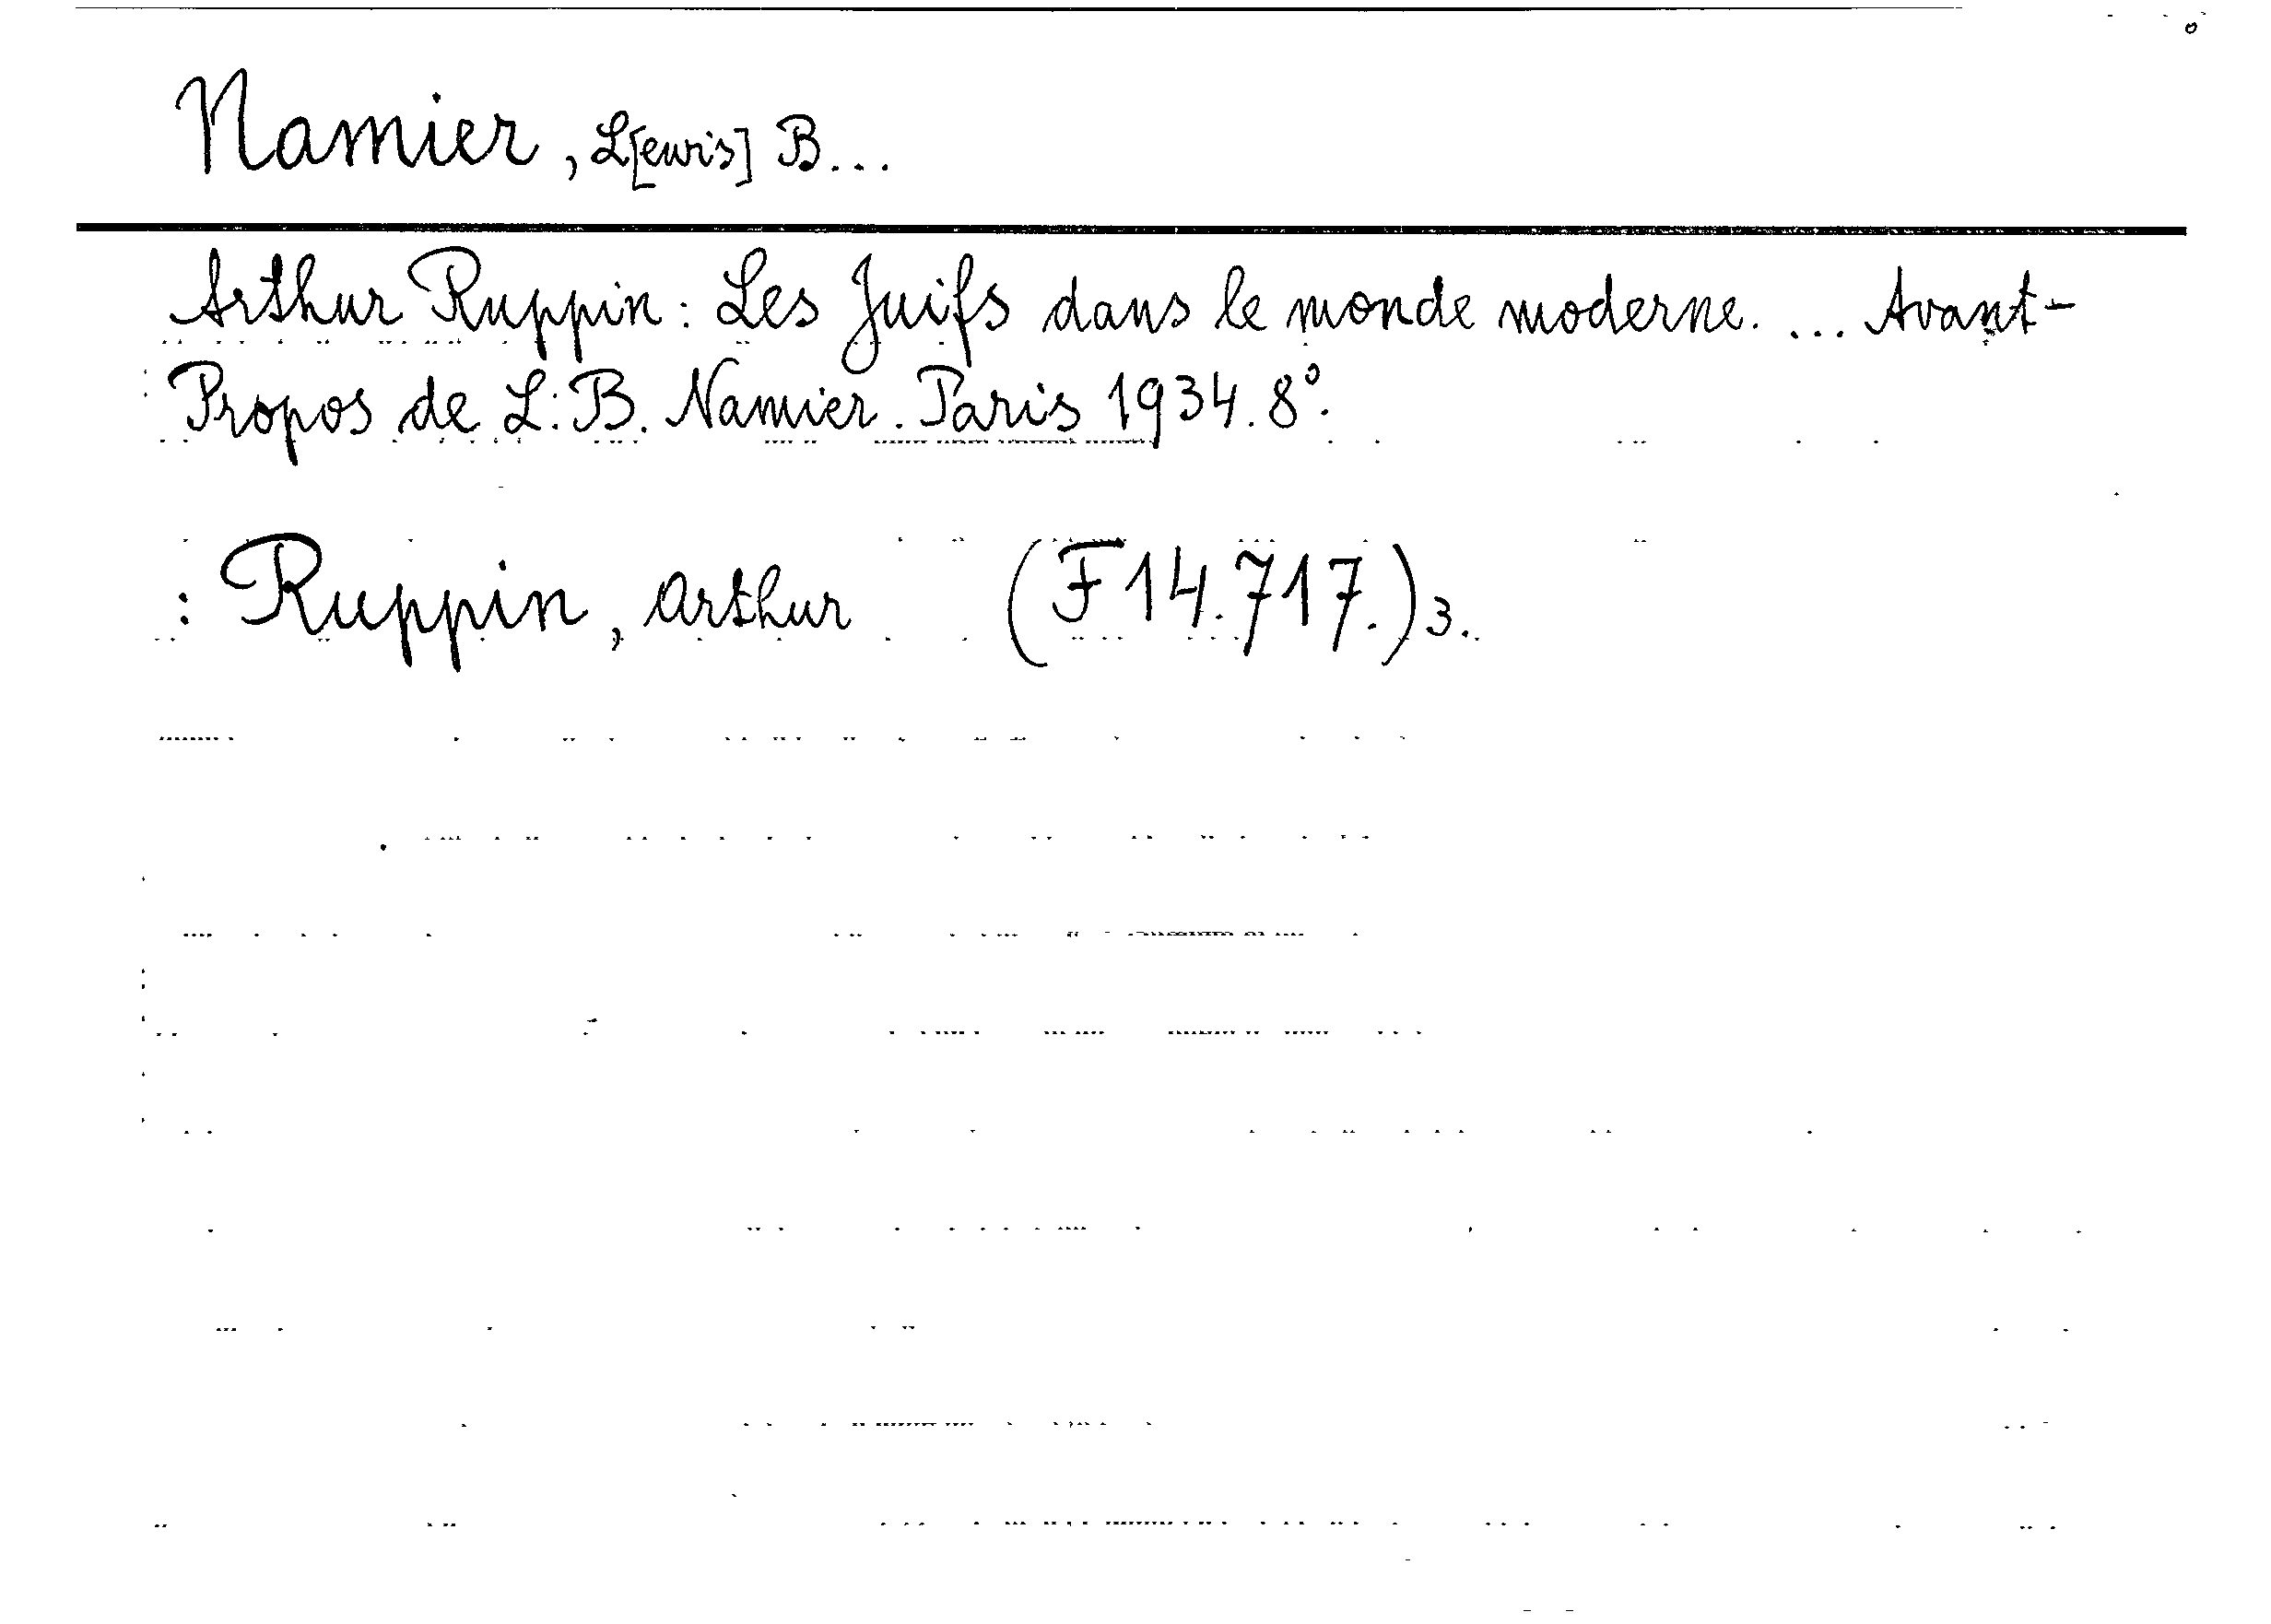 Namier, L[ewis] B...
Arthur Ruppin: Les Juifs dans le monde moderne. ... Avant-
Propos de L. B. Namier. Paris 1934. 8°.
: Ruppin, Arthur (F 14.717.) 3.